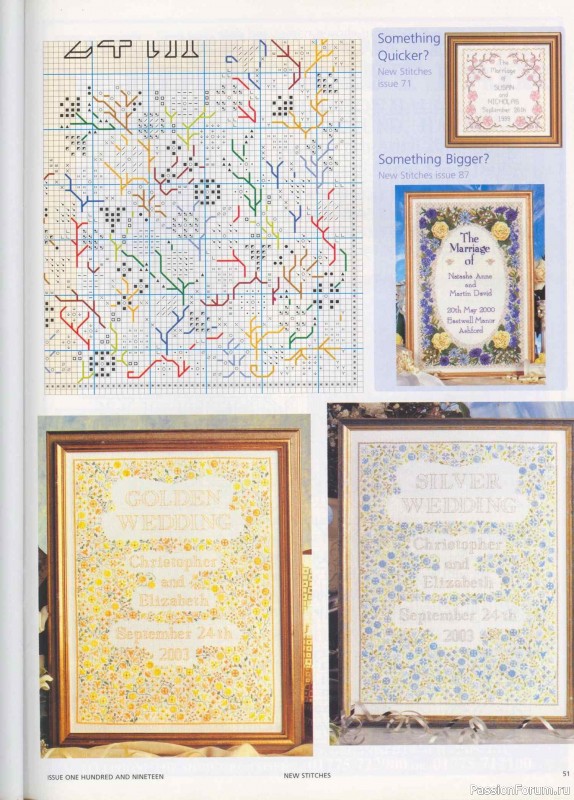 24th
Something
Quicker?
New Stitches
issue 71
The
Marriage
of
SUSAN
and
NICHOLAS
September 26th
Something Bigger?
New Stitches issue 87
The
Marriage
of
Natasha Anne
and
Martin David
20th May 2000
Eastwell Manor
Ashford
GOLDEN
WEDDING
Christopher
and
Elizabeth
September 24th
2003
SILVER
WEDDING
Christopher
and
Elizabeth
September 24th
2003
ISSUE ONE HUNDRED AND NINETEEN
NEW STITCHES
51
PassionForum.ru